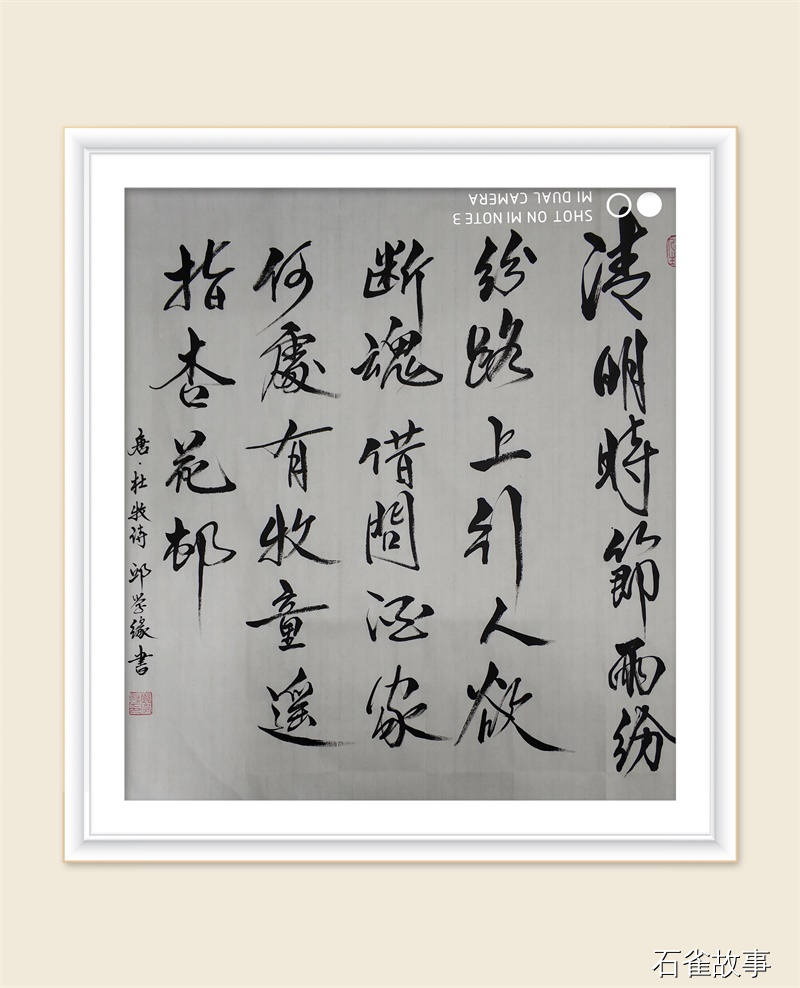 清明時節雨紛
紛路上行人欲
断魂借問酒家
何處有牧童遥
指杏花邨
唐·杜牧诗 邱学缘書
SHOT ON MI NOTE 3
MI DUAL CAMERA
石雀故事